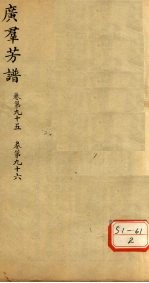 廣羣芳譜
卷第九十五
卷第九十六
51-61
2